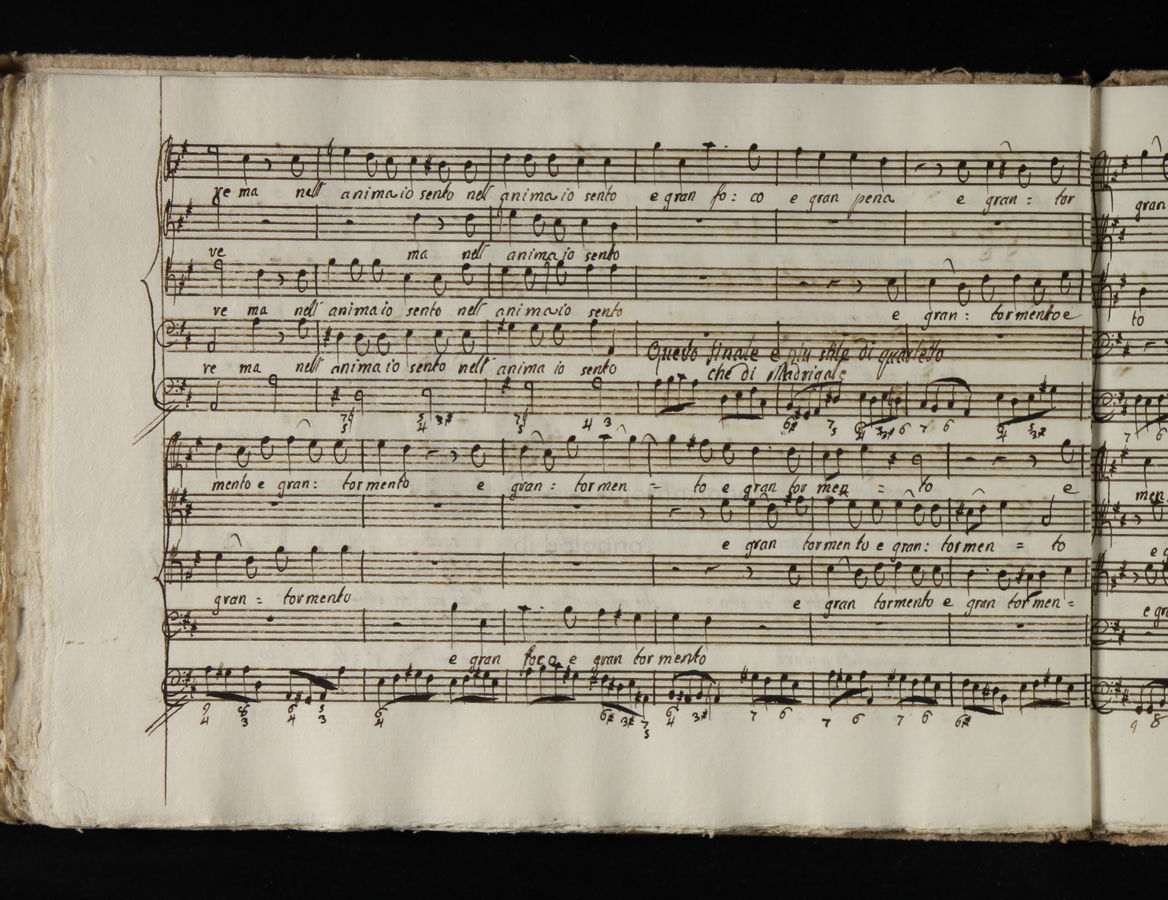 ve ma nell' anima io sento nell' anima io sento e gran fo: co e gran pena e gran: tor
ve ma nell' anima io sento
ve ma nell' anima io sento nell' anima io sento e gran: tormento e
ve ma nell' anima io sento nell' anima io sento
Questo finale è più stile di quartetto
che di Madrigale
mento e gran: tormento e gran: tormen = to e gran tor men = to e
e gran tormento e gran: tormen = to
gran = tormento e gran tormento e gran tormen =
e gran foco e gran tormento
gran
to
men
e g
e gra